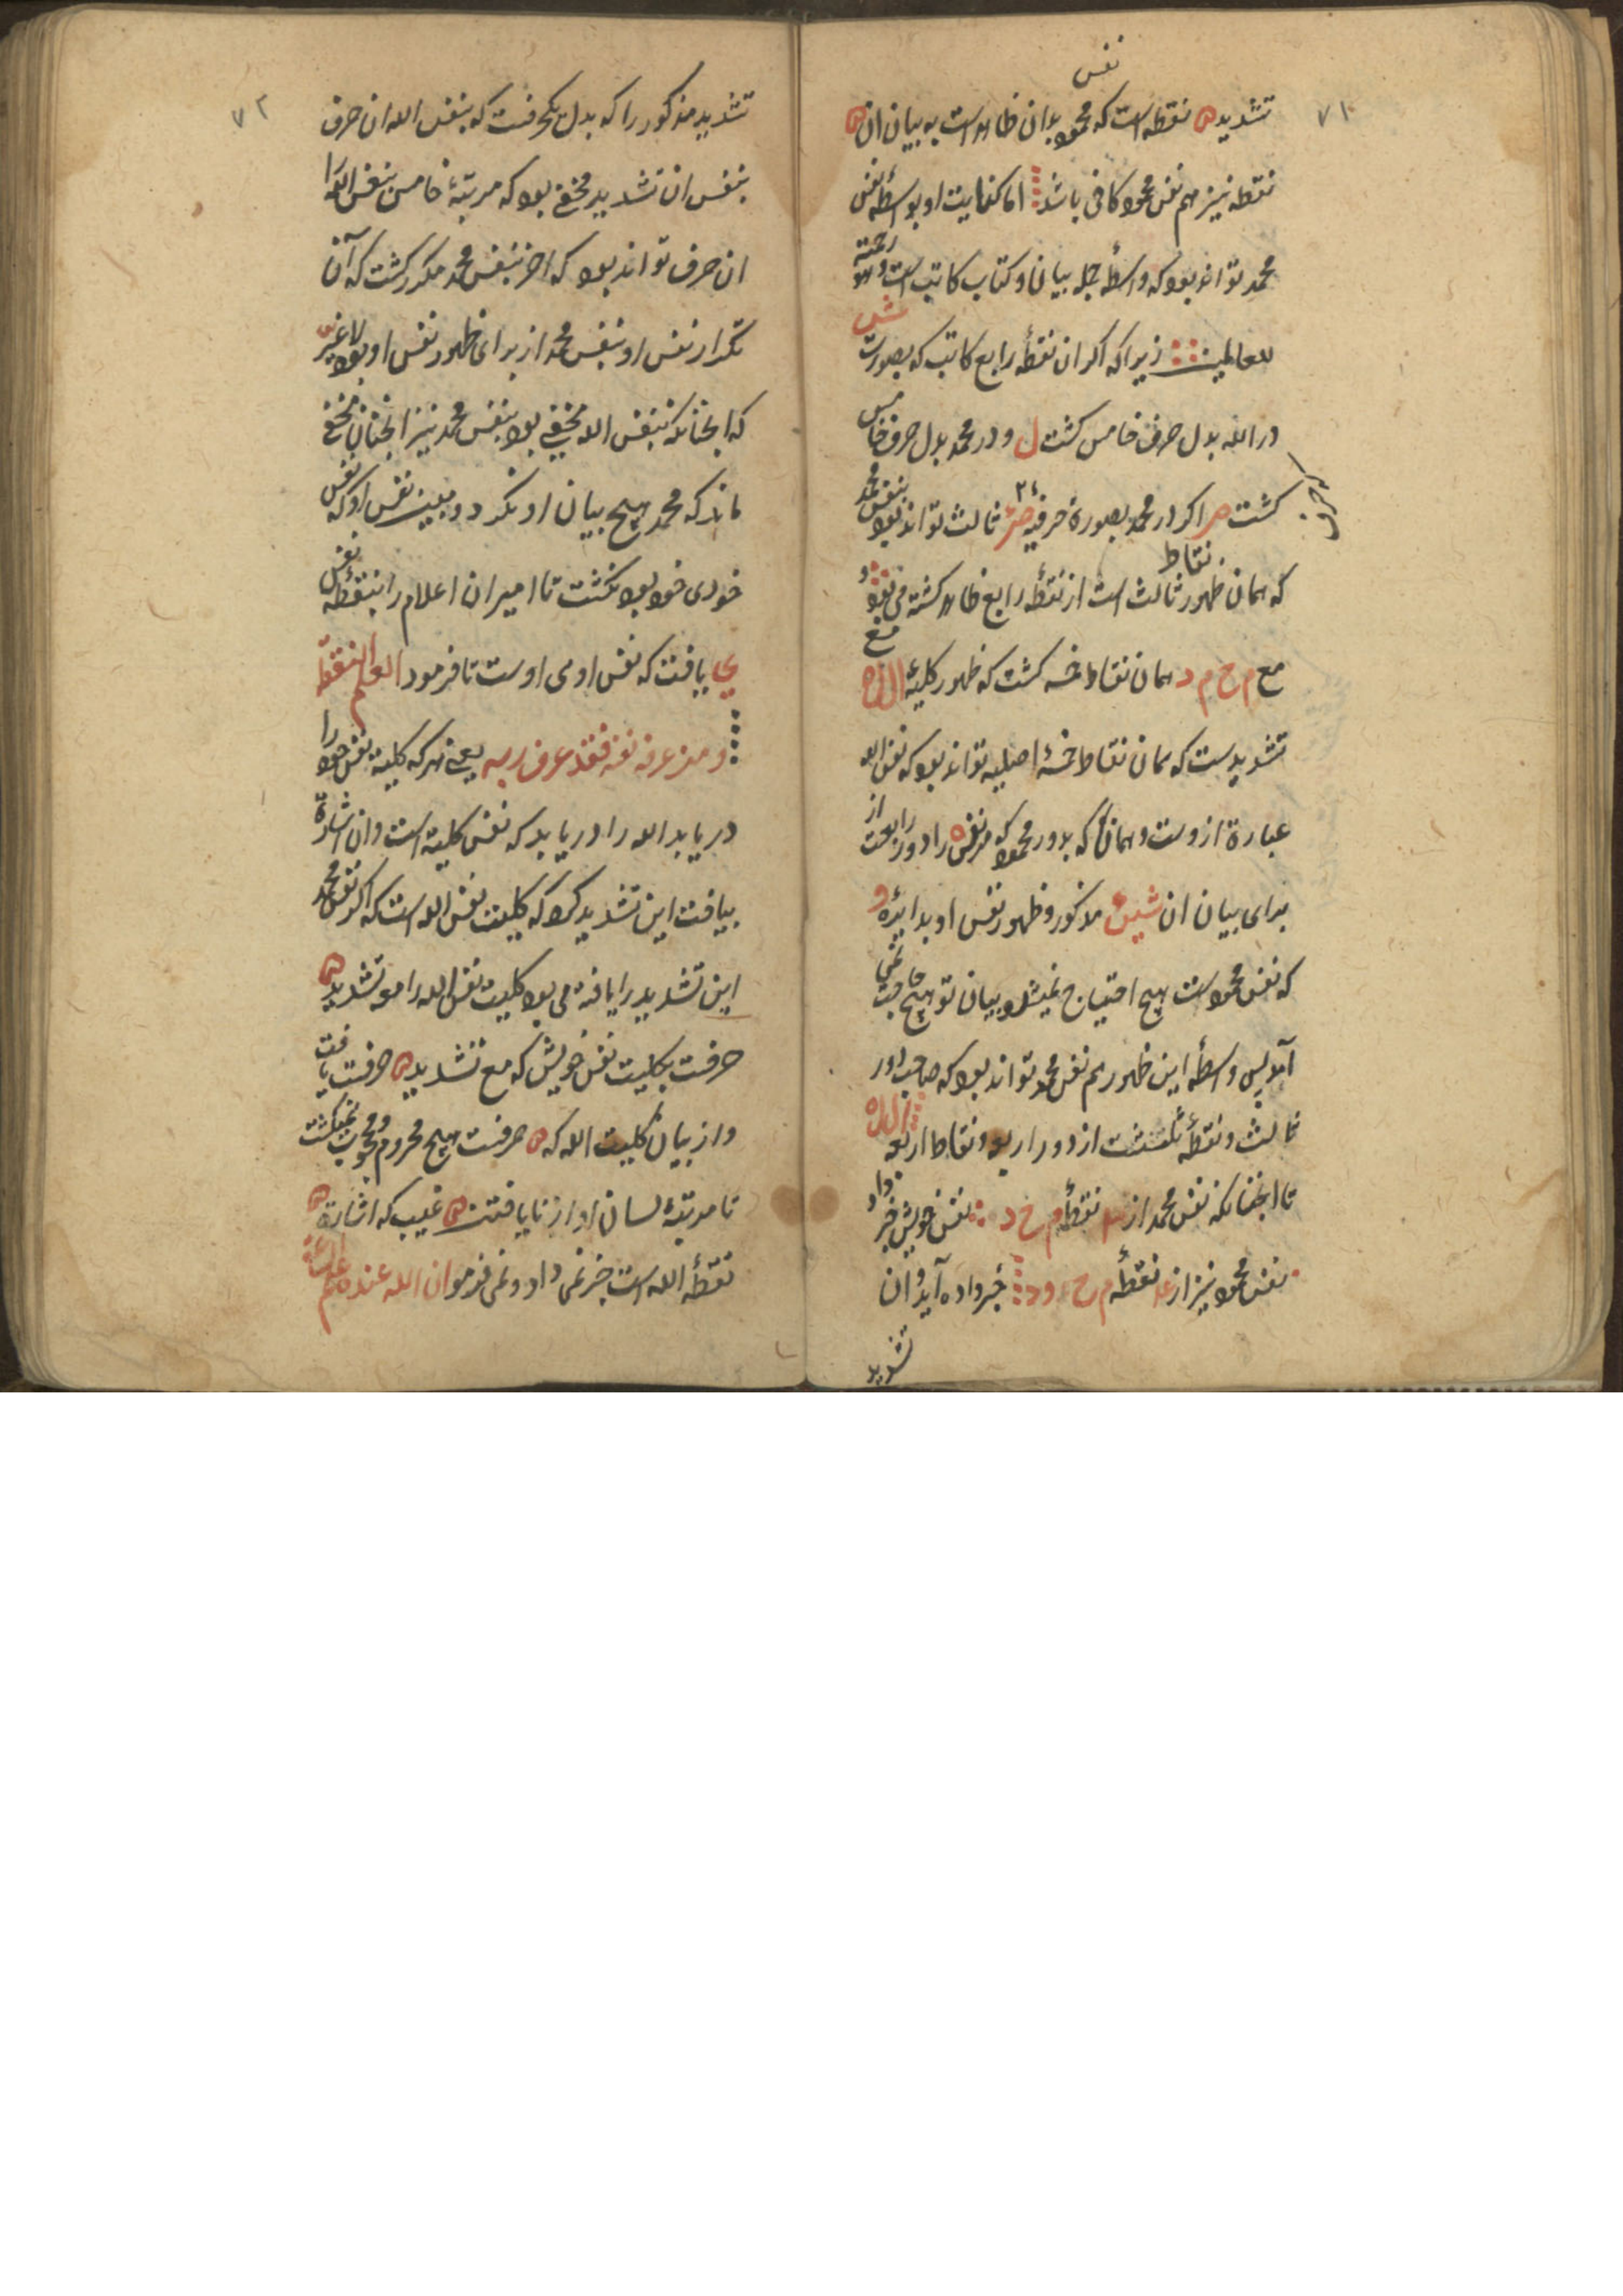 ٧١
نفس
تشدید ں نقطه است که محمود بدان ظاهر است به بیان ان ں
نقطه نیز هم نفس محمود کافی باشد اما کفایت او بواسطهٔ نفس
محمد تواند بود که واسطهٔ جمله بیان و کتاب کاتب است و هو رحمة
للعالمین زیرا که اکر ان نقطهٔ رابع کاتب که بصورت ش
در الله بدل حرف خامس کشت ل و در محمد بدل حرف خامس
کشت م اکر در محمد بصورة حرفیه ثالث تواند بود بنفس محمد
که همان ظهور نقاط ثالث است از نقطهٔ رابع ظاهر کشته می بود و
مع م ح م د همان نقاط خمسه کشت که ظهور کلیهٔ ا ل ل ه مع
تشدیدست که همان نقاط خمسهٔ اصلیه تواند بود که نفس الله
عبارة ازوست و همانکه بدور محمود که مر نفس را دور رابعست از
برای بیان ان شین مذکور و ظهور نفس او بدایرهٔ و
که نفس محمودست هیچ احتیاج نمیشد و بیان تو هیچ حاجت نمی
آمد پس واسطهٔ این ظهور هم نفس محمد تواند بود که صاحب دور
ثالث و نقطهٔ ثلثست از دور اربعه و نقاط اربعه ا ل ل ه
تا انچنانکه نفس محمد از نقطهٔ م ح د نفس خویش خبر داد
نفس محمود نیز از نقطهٔ م ح و د خبر داده آید و ان
تشدید
٧٢
تشدید مذکور را که بدل یکحرفست که بنفس الله ان حرف
بنفس ان تشدید مخفی بود که مرتبهٔ خامس بنفس الله را
ان حرف تواند بود که اخر بنفس محمد مکرر کشت که آن
تکرار نفس او بنفس محمد از برای ظهور نفس او بود لا غیر
که انچنانکه بنفس الله مخفی بود بنفس محمد نیز انچنان مخفی
ماند که محمد هیچ بیان او نکرد و مبین نفس او که نفس
خودی خود بود نکشت تا امیر ان اعلام را بنقطهٔ نفس
ی یافت که نفس او می اوست تا فرمود العلم نقطة
و من عرف نفسه فقد عرف ربه یعنی هر که کلیة نفس خود را
دریابد الله را دریابد که نفس کلیة است و ان اشارة
بیافت این تشدید کرد که کلیت نفس الله است که اکر نفس محمد
این تشدید را یافته می بود کلیت نفس الله را مع تشدید ں
حرفست بکلیت نفس خویش که مع تشدید ں حرفست یافت
و از بیان کلیت الله که ں حرفست هیچ محروم و محجوب نمیکشت
تا مرتبهٔ لسان او از نایافتن ں غیب که اشارة ں
نقطهٔ الله است خبر نمی داد و نمی فرمود ان الله عنده علم الساعة